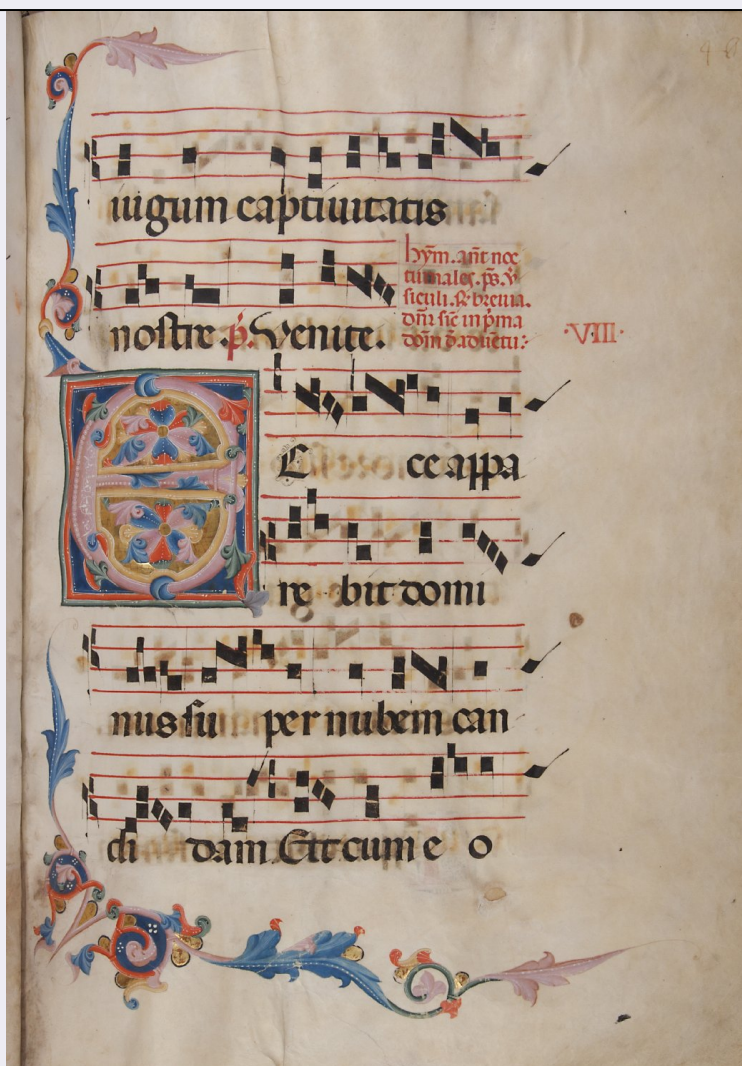 iugum captiuitatis
nostre. p̄. Venite.
hym̄. ant̄ noc
turnales. p̄s. v̄
siculi. R̄ breuia.
dn̄r sic̄ in p̄ma
dom̄ p̄ aduētu:
·VIII·
E cce appa
re bit domi
nus su per nubem can
di dam Et cum e o